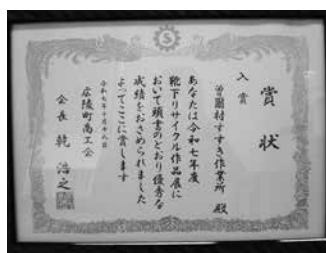 賞状
入賞
曽爾村すすき作業所 殿
あなたは令和七年度
靴下リサイクル作品展に
おいて頭書のとおり優秀な
成績をおさめられました
よってここに賞します
令和七年十月十九日
広陵町商工会
会長 乾 浩之